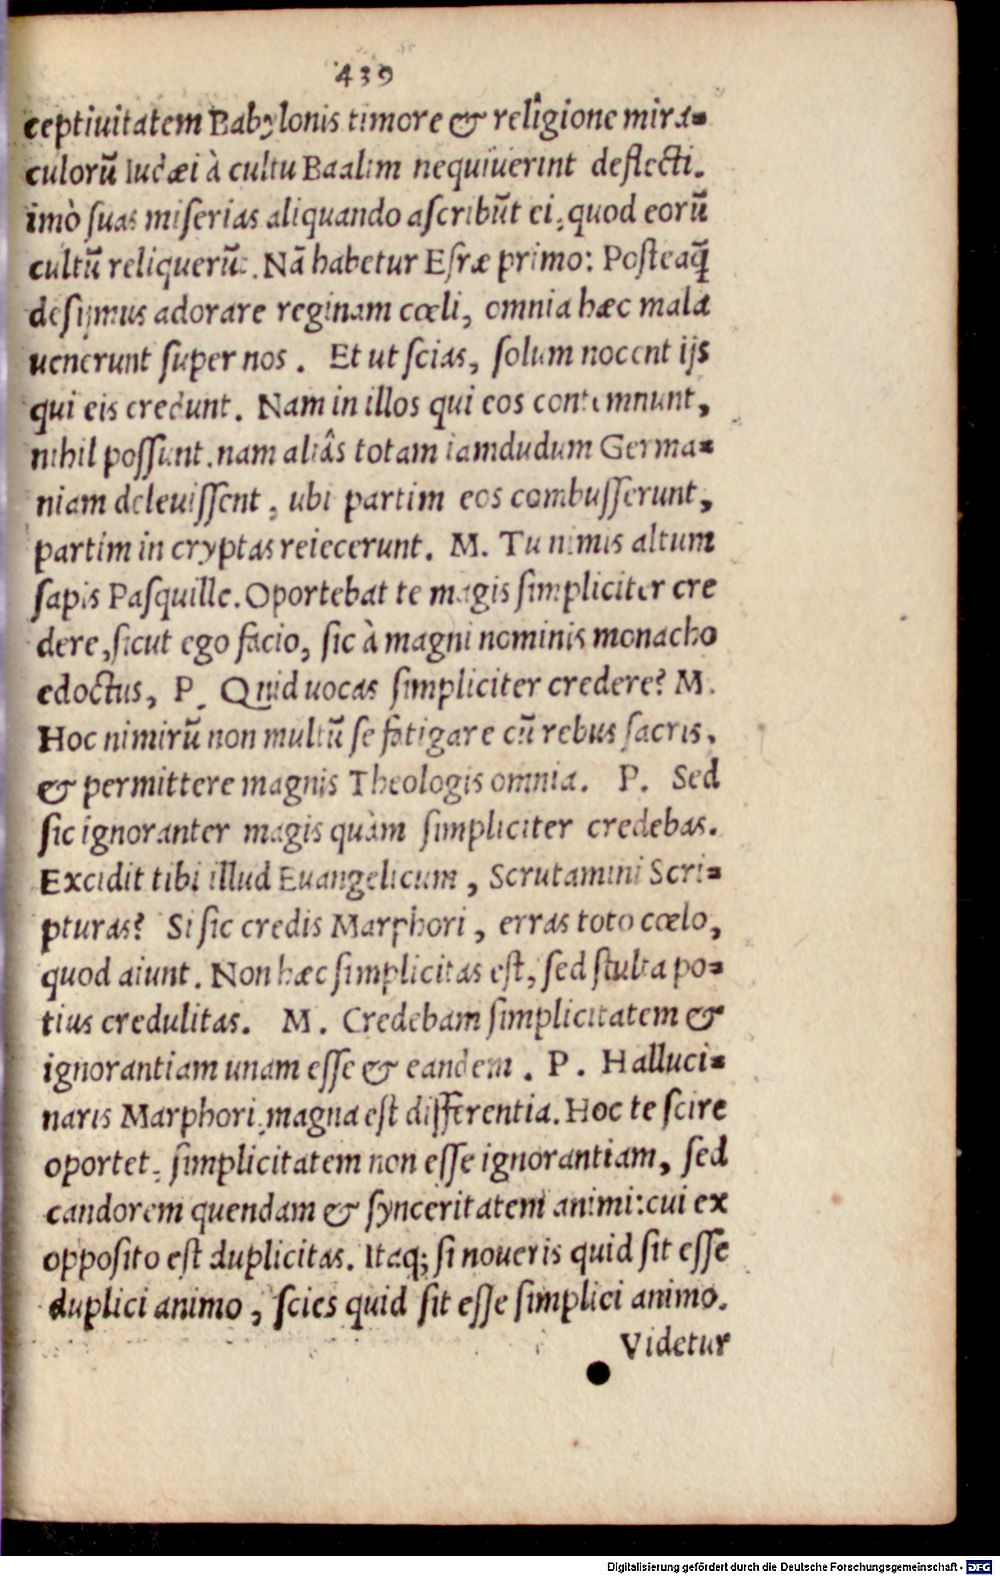 439
ceptiuitatem Babylonis timore & religione mira=
culorũ Iudæi à cultu Baalim nequiuerint deflecti.
imò suas miserias aliquando ascribũt ei, quod eorũ
cultũ reliquerũt. Nã habetur Esræ primo: Posteaq̃
desijmus adorare reginam cœli, omnia hæc mala
uenerunt super nos. Et ut scias, solum nocent ijs
qui eis credunt. Nam in illos qui eos contemnunt,
nihil possunt. nam aliâs totam iamdudum Germa=
niam deleuissent, ubi partim eos combusserunt,
partim in cryptas reiecerunt. M. Tu nimis altum
sapis Pasquille. Oportebat te magis simpliciter cre
dere, sicut ego facio, sic à magni nominis monacho
edoctus, P. Quid uocas simpliciter credere? M.
Hoc nimirũ non multũ se fatigare cũ rebus sacris,
& permittere magnis Theologis omnia. P. Sed
sic ignoranter magis quàm simpliciter credebas.
Excidit tibi illud Euangelicum, Scrutamini Scri=
pturas? Si sic credis Marphori, erras toto cœlo,
quod aiunt. Non hæc simplicitas est, sed stulta po=
tius credulitas. M. Credebam simplicitatem &
ignorantiam unam esse & eandem. P. Halluci=
naris Marphori, magna est differentia. Hoc te scire
oportet, simplicitatem non esse ignorantiam, sed
candorem quendam & synceritatem animi: cui ex
opposito est duplicitas. Itaq; si noueris quid sit esse
duplici animo, scies quid sit esse simplici animo.
Videtur
Digitalisierung gefördert durch die Deutsche Forschungsgemeinschaft - DFG